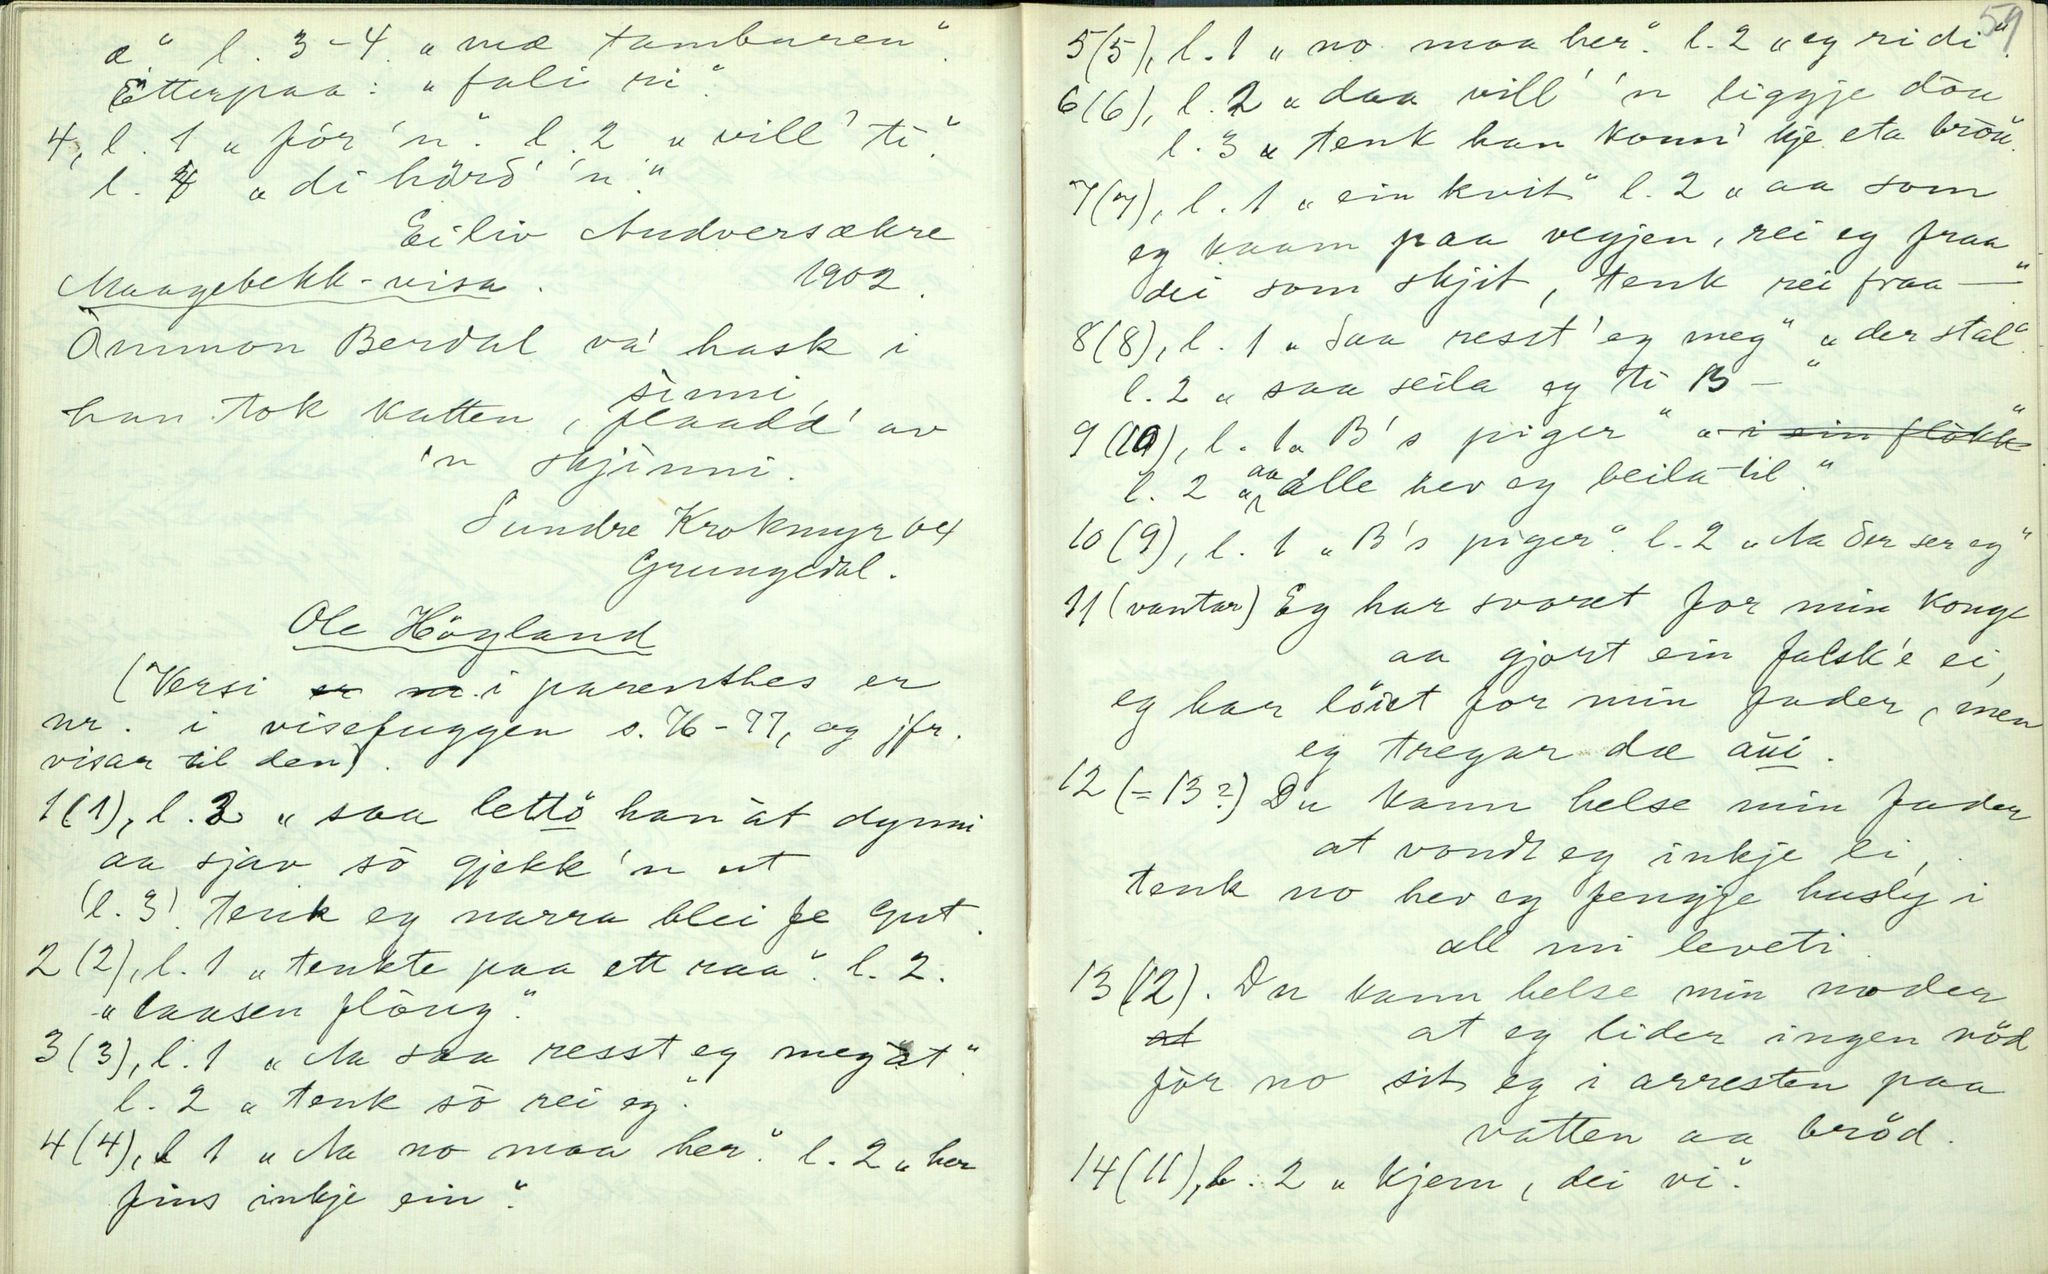 æ" l. 3-4 „mæ tamburen".
Etterpaa: „fali ri".
4, l. 1 „för 'n". l. 2 „vill' ti".
l. 4 „di hörd' 'n."
Eiliv Andversækre
1902.
Maagebekk-visa.
Ommon Berdal va' hask i
sinni,
han tok katten, flaadd' av
'n skjinni.
Sundre Krokmyr 04
Grungedal.
Ole Högland
(Versi er nr. i parenthes er
nr. i visefuggen s. 76-77, og jfr.
visar til den).
1(1), l. 2 „saa lettö han åt dynni
aa sjav sö gjekk 'n ut
(l. 3! tenk eg narra blei fe gut.
2(2), l. 1 „tenkte paa ett raa". l. 2.
„laasen flöug".
3(3), l. 1 „Aa saa resst eg meg åt".
l. 2 „tenk sö rei eg".
4(4), l 1 „Aa no maa her". l. 2 „her
fins inkje ein".
59
5(5), l. 1 „no maa her". l. 2 „eg ridi".
6(6), l. 2 „daa vill' 'n liggje döu
l. 3 „tenk han konn' kje eta bröu".
7(7), l. 1 „ein kvit" l. 2 „aa som
eg kaam paa vegjen, rei eg fraa
dei som skjit, tenk rei fraa —"
8(8), l. 1 „Saa resst' eg meg" „der stal".
l. 2 „saa seila eg ti B —"
9(10), l. 1 „B's piger" „i ein flokk"
l. 2 „aa alle hev eg beila til".
10(9), l. 1 „B's piger". l. 2 „Aa der ser eg"
11(vantar) Eg har svoret for min konge
aa gjort ein falsk'e ei,
eg har löiet for min fader, men
eg tregar dæ äui.
12(=13?) Du kann helse min fader
at vondt eg inkje li,
tenk no hev eg fengje husly i
all mi leveti
13(12). Du kann helse min moder
at at eg lider ingen nöd
för no sit eg i arresten paa
vatten aa bröd.
14(11), l. 2 „kjem, dei vi".